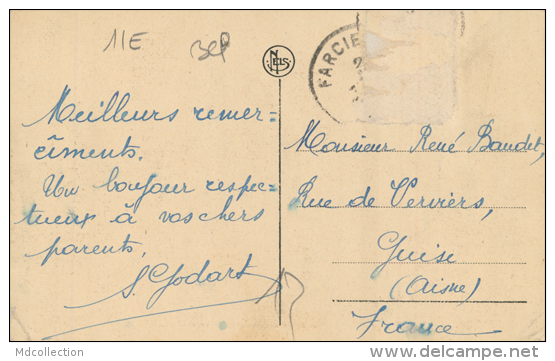 11E
NELS
FARCIE
Meilleurs remer=
cîments.
Un bonjour respec=
tueux à vos chers
parents,
S. Godart
Monsieur René Baudet,
Rue de Verviers,
Guise
(Aisne)
France
Mdcollection
delcampe.net